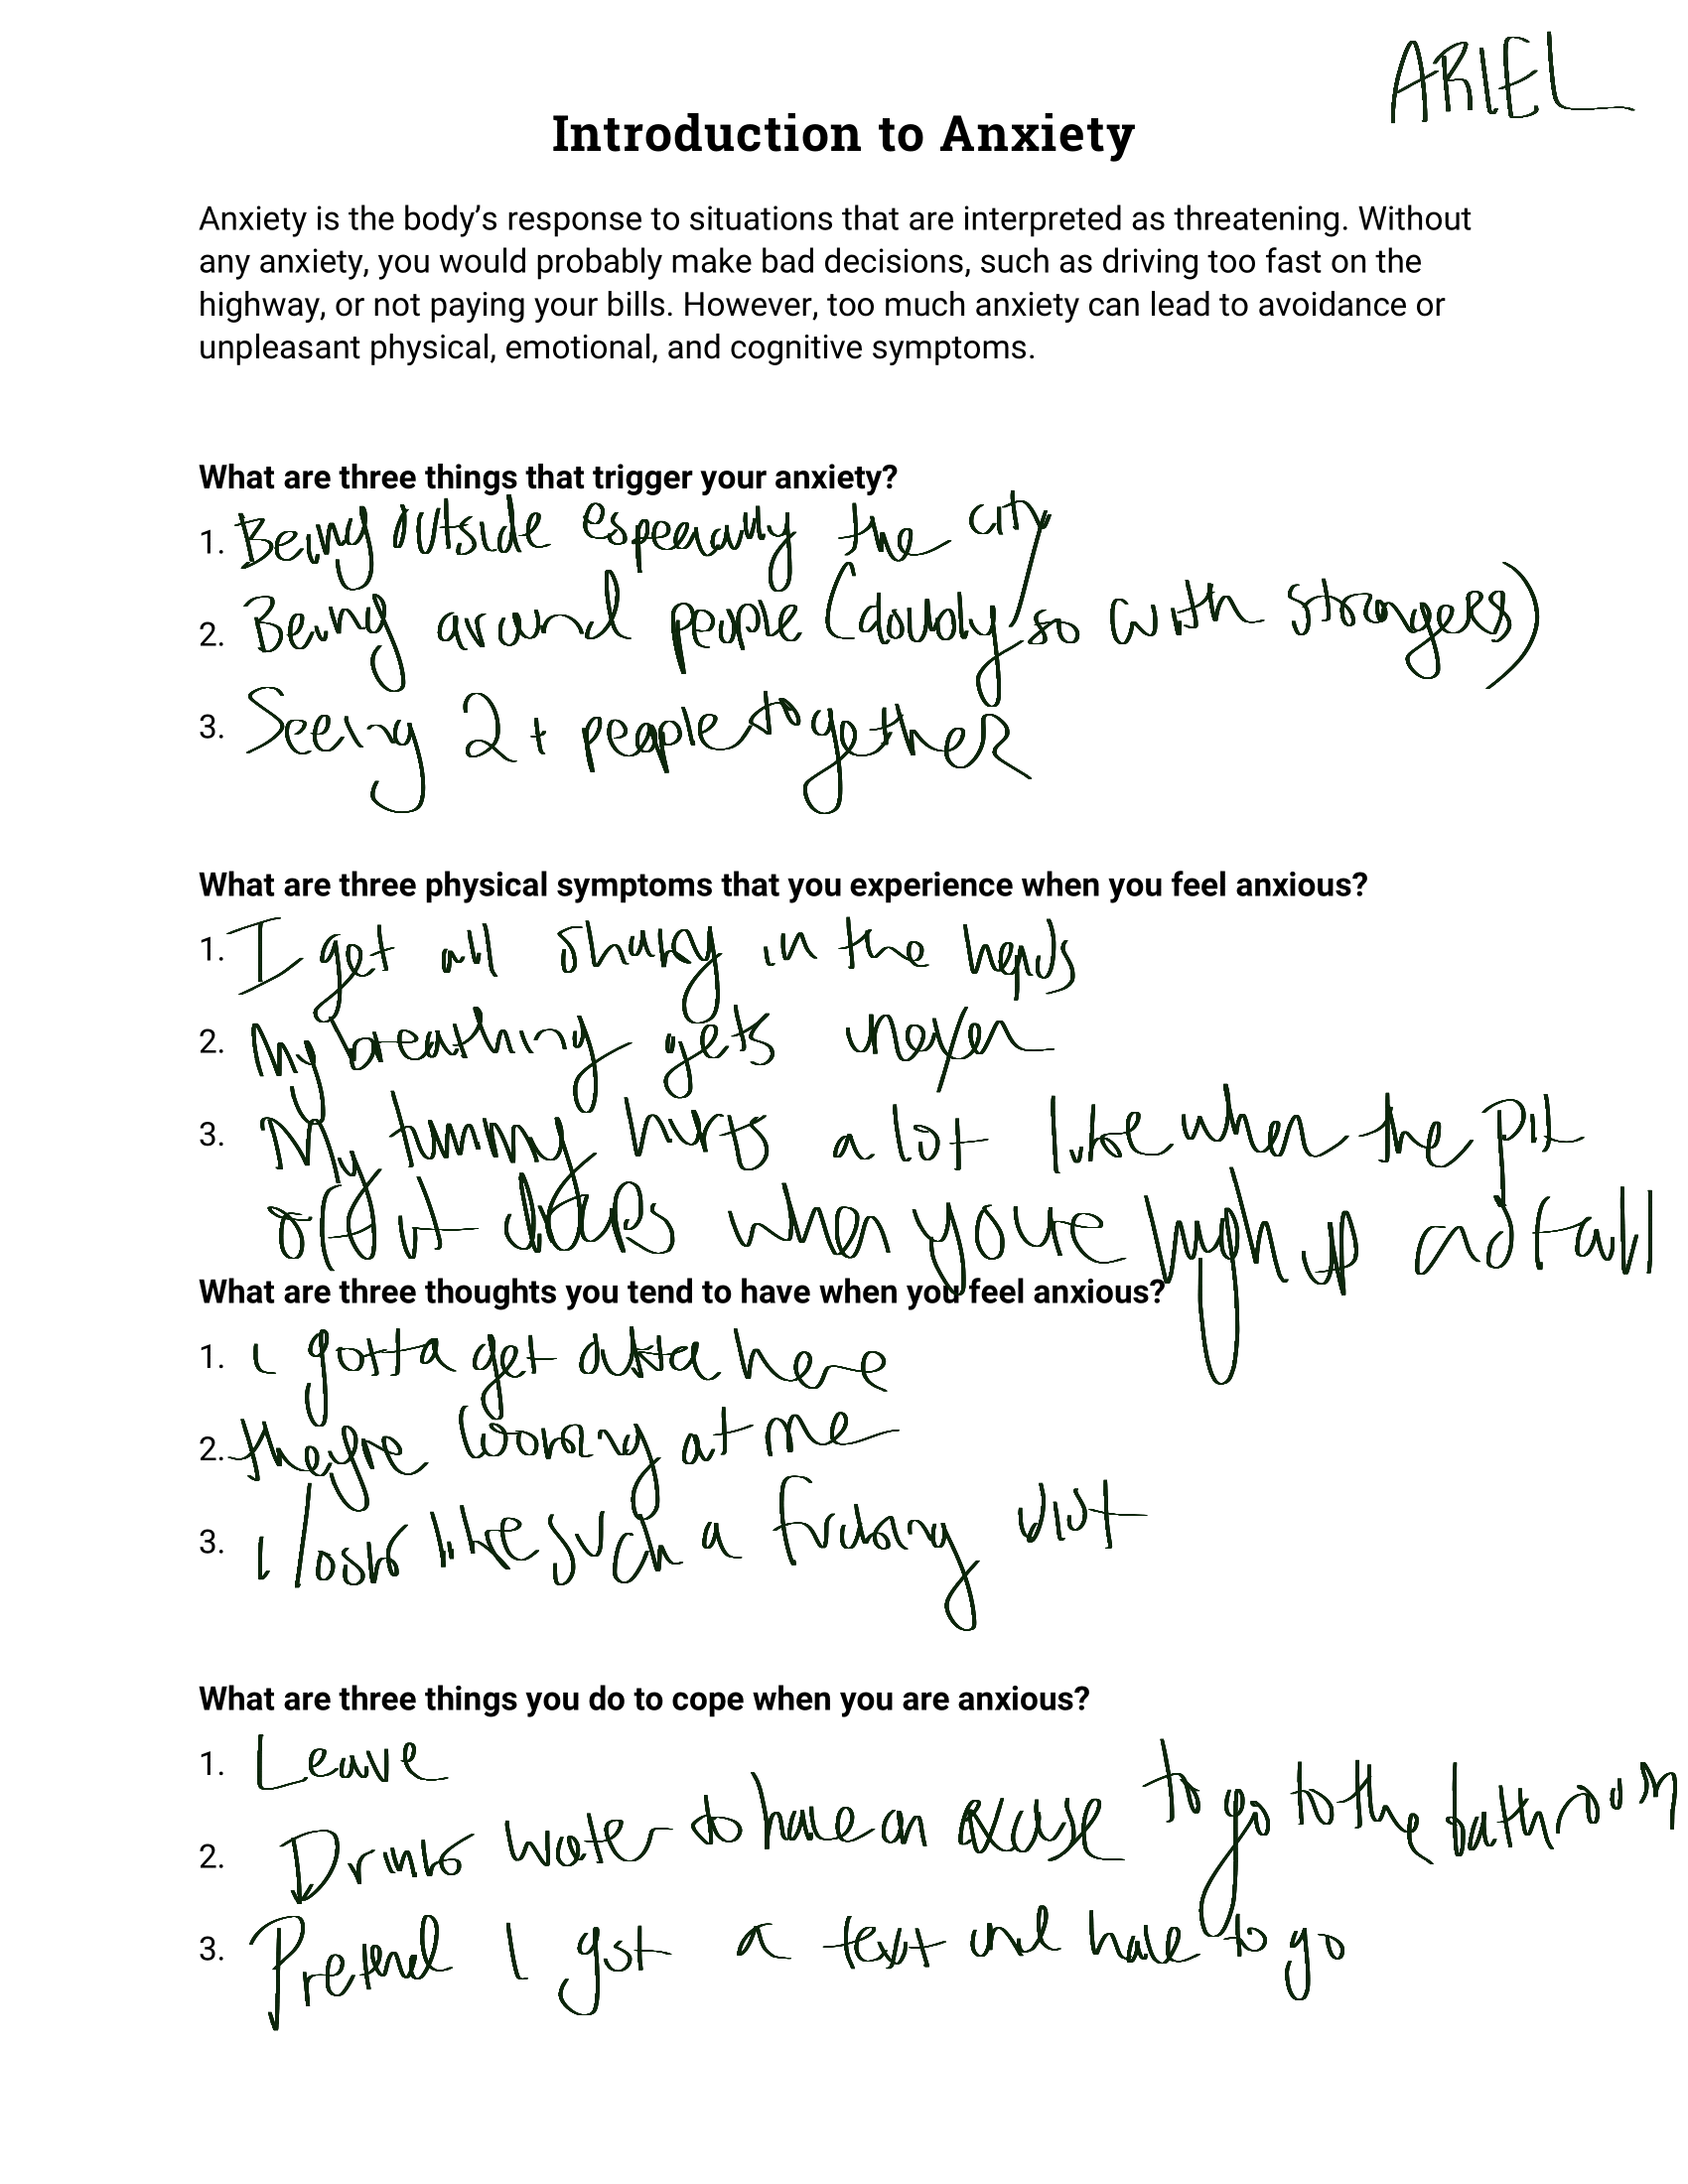 ARIEL
Introduction to Anxiety
Anxiety is the body’s response to situations that are interpreted as threatening. Without
any anxiety, you would probably make bad decisions, such as driving too fast on the
highway, or not paying your bills. However, too much anxiety can lead to avoidance or
unpleasant physical, emotional, and cognitive symptoms.
What are three things that trigger your anxiety?
1. Being outside especially the city
2. Being around people (doubly so with strangers)
3. Seeing 2+ people together
What are three physical symptoms that you experience when you feel anxious?
1. I get all shaky in the hands
2. My breathing gets uneven
3. My tummy hurts a lot like when the pit
of it drops when youre high up and fall
What are three thoughts you tend to have when you feel anxious?
1. i gotta get outta here
2. they're looking at me
3. i look like such a fucking idiot
What are three things you do to cope when you are anxious?
1. Leave
2. Drink water to have an excuse to go to the bathroom
3. Pretend I got a text and have to go